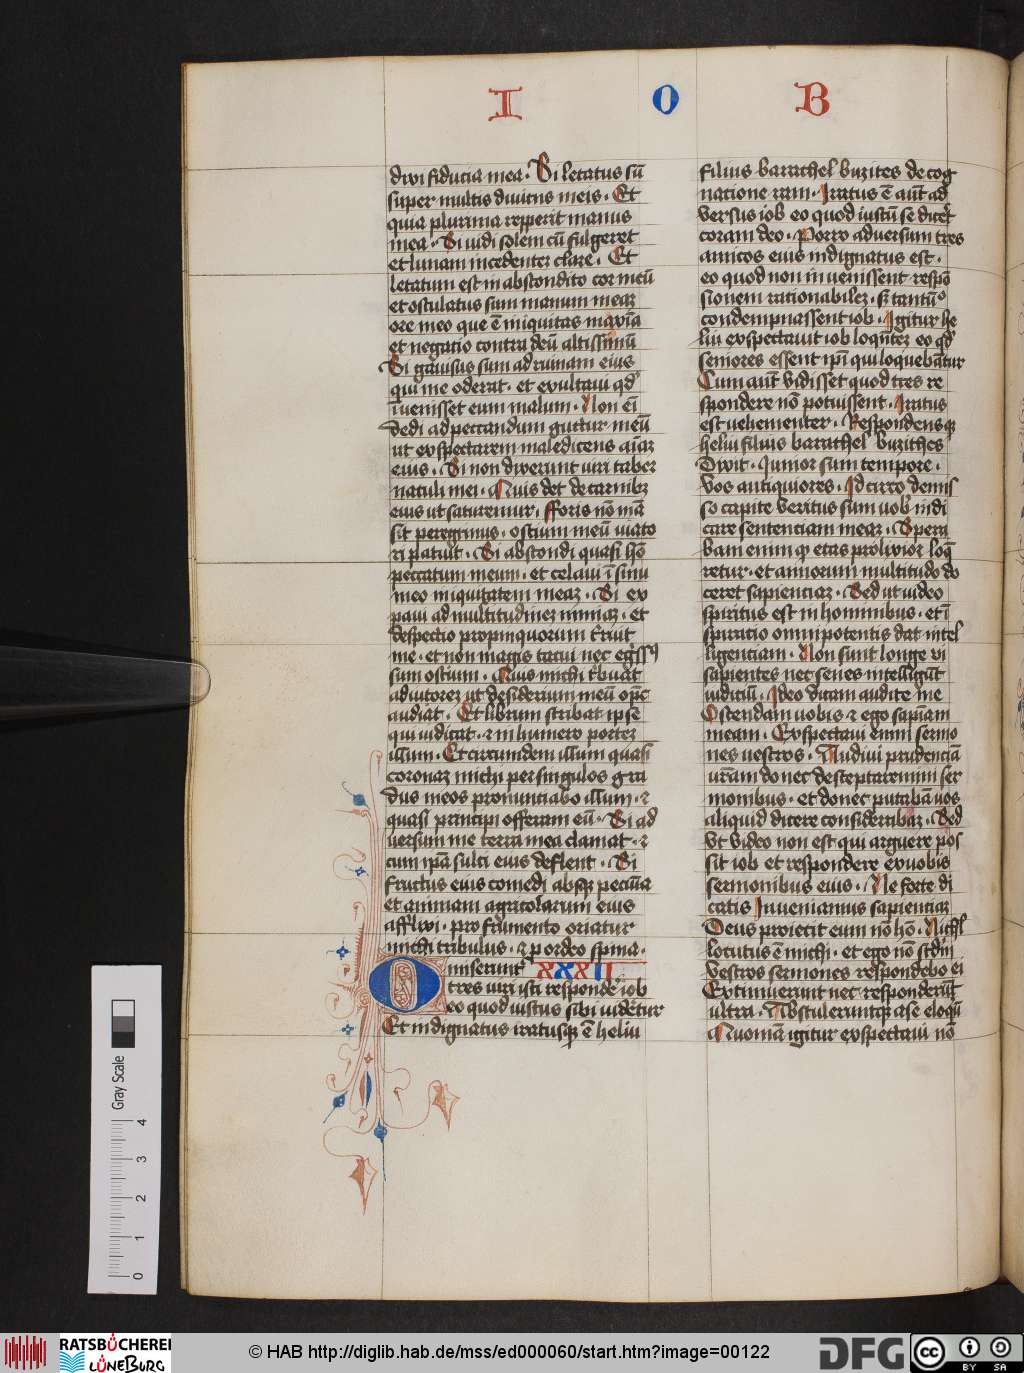 I O B
dixi fiducia mea. Si letatus sū
super multis diuitiis meis. Et
quia plurima repperit manus
mea. Si uidi solem cū fulgeret
et lunam incedentez clare. Et
letatum est in abscondito cor meū
et osculatus sum manum meaz
ore meo que ē iniquitas maxīa
et negatio contra deū altissimū
Si gauisus sum ad ruinam eius
qui me oderat. et exultaui qd'
īuenisset eum malum. Non eī
dedi ad peccandum guttur meū
ut expectarem maledicens aīaz
eius. Si non dixerunt uiri taber
naculi mei. Quis det de carnibz
eius ut saturemur. Foris nō mā
sit peregrinus. ostium meū uiato
ri patuit. Si abscondi quasi hō
peccatum meum. et celaui ī sinu
meo iniquitatem meaz. Si ex
paui ad multitudinez nimiaz. et
despectio propinquorum t'ruit
me. et non magis tacui nec eg'ssus
sum ostium. Quis michi t'buat
adiutorez ut desiderium meū op̄s
audiat. Et librum scribat ipse
qui iudicat. et in humero portez
illum. Et circumdem illum quasi
coronaz michi per singulos gra
dus meos pronunciabo illum. et
quasi principi offeram eū. Si ad
uersum me terra mea clamat. et
cum ip̄a sulci eius deflent. Si
fructus eius comedi absqz pecuīa
et animam agricolarum eius
afflixi. pro frumento oriatur
michi tribulus. et p ordeo spina.
Omiserunt XXXII
tres uiri isti respondē iob
eo quod iustus sibi uideretur
Et indignatus iratusqz ē heliu
filius barachel buzites de cog
natione ram. Iratus ē aūt ad
versus iob eo quod iustū se dicēt
coram deo. Porro aduersum tres
amicos eius indignatus est.
eo quod non inuenissent respon
sionem rationabilez. s; tantūo
condempnassent iob. Igitur he
liu expectauit iob loquētez eo qd'
seniores essent ip̄i qui loquebātur
Cum aūt vidisset quod tres re
spondere nō potuissent. Iratus
est uehementer. Respondensqz
heliu filius barachel buzithes
Dixit. Iunior sum tempore.
vos antiquiores. Idcirco demis
so capite veritus sum uob' indi
care sentenciam meaz. Spera
bam enim q etas prolixior loq̄
retur. et annorum multitudo do
ceret sapienciaz. Sed ut video
spiritus est in hominibus. et ī
spiratio omnipotentis dat intel
ligenciam. Non sunt longe vi
sapientes nec senes intelligūt
iudiciū. Ideo dicam audite me
Ostendam uobis et ego sap̄iam
meam. Expectaui enim sermo
nes uestros. Audiui prudenciā
ur̄am donec desceptaremini ser
monibus. et donec putabā uos
aliquid dicere considerabaz. Sed
Vt video non est qui arguere pos
sit iob et respondere ex uobis
sermonibus eius. Ne forte di
catis Inuenimus sapienciaz
Deus proiecit eum nō hō. Nichil
locutus ē michi. et ego nō scdm
vestros sermones respondebo ei
Extimuerunt nec responderūt
ultra. Abstuleruntqz a se eloq̄ū
Quoniā igitur expectaui nō
Gray Scale
0 1 2 3 4
RATSBÜCHEREI
LÜNEBURG
© HAB http://diglib.hab.de/mss/ed000060/start.htm?image=00122
DFG
cc BY SA